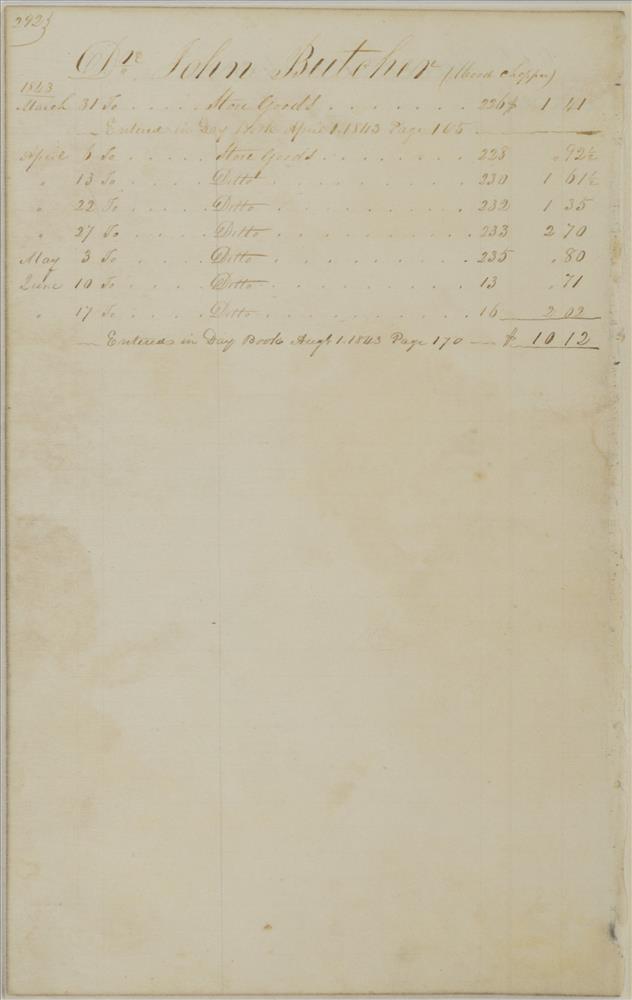 292
Dr. John Butcher (Wood Chopper)
1843
March 31 To . . . . Store Goods . . . . . . . 226 $ 1 41
— Entered in Day Book April 1. 1843 Page 165 —
April 6 To . . . . . Store Goods . . . . . . . . 228 " 92½
" 13 To . . . . . Ditto . . . . . . . . . . 230 1 61½
" 22 To . . . . . Ditto . . . . . . . . . . 232 1 35
" 27 To . . . . . Ditto . . . . . . . . . . 233 2 70
May 3 To . . . . . Ditto . . . . . . . . . . 235 " 80
June 10 To . . . . . Ditto . . . . . . . . . . 13 " 71
" 17 To . . . . . Ditto . . . . . . . . . . 16 2 02
— Entered in Day Book Augt 1. 1843 Page 170 — $ 10 12